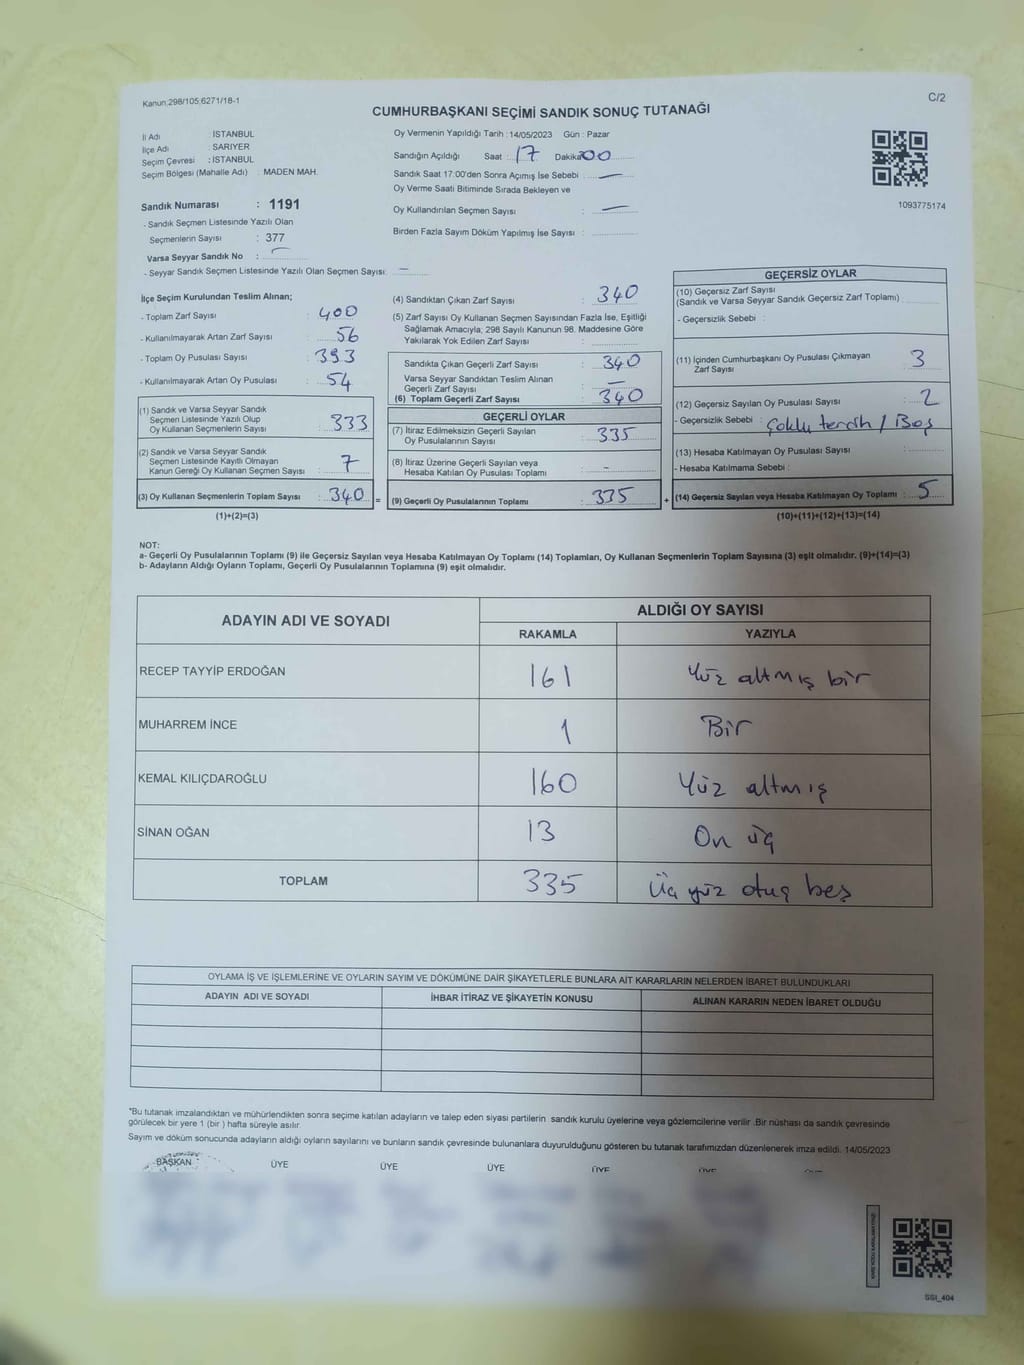 Kanun:298/105;6271/18-1
C/2
CUMHURBAŞKANI SEÇİMİ SANDIK SONUÇ TUTANAĞI
İl Adı : İSTANBUL
İlçe Adı : SARIYER
Seçim Çevresi : İSTANBUL
Seçim Bölgesi (Mahalle Adı) : MADEN MAH.
Sandık Numarası : 1191
- Sandık Seçmen Listesinde Yazılı Olan
Seçmenlerin Sayısı : 377
Varsa Seyyar Sandık No :
- Seyyar Sandık Seçmen Listesinde Yazılı Olan Seçmen Sayısı: —
Oy Vermenin Yapıldığı Tarih : 14/05/2023 Gün : Pazar
Sandığın Açıldığı Saat : 17 Dakika 00
Sandık Saat 17:00'den Sonra Açımış İse Sebebi : —
Oy Verme Saati Bitiminde Sırada Bekleyen ve
Oy Kullandırılan Seçmen Sayısı : —
Birden Fazla Sayım Döküm Yapılmış İse Sayısı :
1093775174
İlçe Seçim Kurulundan Teslim Alınan;
- Toplam Zarf Sayısı : 400
- Kullanılmayarak Artan Zarf Sayısı : 56
- Toplam Oy Pusulası Sayısı : 393
- Kullanılmayarak Artan Oy Pusulası : 54
(1) Sandık ve Varsa Seyyar Sandık
Seçmen Listesinde Yazılı Olup
Oy Kullanan Seçmenlerin Sayısı : 333
(2) Sandık ve Varsa Seyyar Sandık
Seçmen Listesinde Kayıtlı Olmayan
Kanun Gereği Oy Kullanan Seçmen Sayısı : 7
(3) Oy Kullanan Seçmenlerin Toplam Sayısı : 340 =
(1)+(2)=(3)
(4) Sandıktan Çıkan Zarf Sayısı : 340
(5) Zarf Sayısı Oy Kullanan Seçmen Sayısından Fazla İse, Eşitliği
Sağlamak Amacıyla; 298 Sayılı Kanunun 98. Maddesine Göre
Yakılarak Yok Edilen Zarf Sayısı :
Sandıkta Çıkan Geçerli Zarf Sayısı : 340
Varsa Seyyar Sandıktan Teslim Alınan
Geçerli Zarf Sayısı : —
(6) Toplam Geçerli Zarf Sayısı : 340
GEÇERLİ OYLAR
(7) İtiraz Edilmeksizin Geçerli Sayılan
Oy Pusulalarının Sayısı : 335
(8) İtiraz Üzerine Geçerli Sayılan veya
Hesaba Katılan Oy Pusulası Toplamı : -
(9) Geçerli Oy Pusulalarının Toplamı : 335 +
GEÇERSİZ OYLAR
(10) Geçersiz Zarf Sayısı
(Sandık ve Varsa Seyyar Sandık Geçersiz Zarf Toplamı)
- Geçersizlik Sebebi :
(11) İçinden Cumhurbaşkanı Oy Pusulası Çıkmayan
Zarf Sayısı : 3
(12) Geçersiz Sayılan Oy Pusulası Sayısı : 2
- Geçersizlik Sebebi : Çoklu tercih / Boş
(13) Hesaba Katılmayan Oy Pusulası Sayısı :
- Hesaba Katılmama Sebebi :
(14) Geçersiz Sayılan veya Hesaba Katılmayan Oy Toplamı : 5
(10)+(11)+(12)+(13)=(14)
NOT:
a- Geçerli Oy Pusulalarının Toplamı (9) ile Geçersiz Sayılan veya Hesaba Katılmayan Oy Toplamı (14) Toplamları, Oy Kullanan Seçmenlerin Toplam Sayısına (3) eşit olmalıdır. (9)+(14)=(3)
b- Adayların Aldığı Oyların Toplamı, Geçerli Oy Pusulalarının Toplamına (9) eşit olmalıdır.
ADAYIN ADI VE SOYADI
ALDIĞI OY SAYISI
RAKAMLA YAZIYLA
RECEP TAYYİP ERDOĞAN 161 Yüz altmış bir
MUHARREM İNCE 1 Bir
KEMAL KILIÇDAROĞLU 160 Yüz altmış
SİNAN OĞAN 13 On üç
TOPLAM 335 Üç yüz otuz beş
OYLAMA İŞ VE İŞLEMLERİNE VE OYLARIN SAYIM VE DÖKÜMÜNE DAİR ŞİKAYETLERLE BUNLARA AİT KARARLARIN NELERDEN İBARET BULUNDUKLARI
ADAYIN ADI VE SOYADI İHBAR İTİRAZ VE ŞİKAYETİN KONUSU ALINAN KARARIN NEDEN İBARET OLDUĞU
*Bu tutanak imzalandıktan ve mühürlendikten sonra seçime katılan adayların ve talep eden siyasi partilerin sandık kurulu üyelerine veya gözlemcilerine verilir .Bir nüshası da sandık çevresinde
görülecek bir yere 1 (bir ) hafta süreyle asılır.
Sayım ve döküm sonucunda adayların aldığı oyların sayılarını ve bunların sandık çevresinde bulunanlara duyurulduğunu gösteren bu tutanak tarafımızdan düzenlenerek imza edildi. 14/05/2023
BAŞKAN ÜYE ÜYE ÜYE ÜYE ÜYE
SSI_404